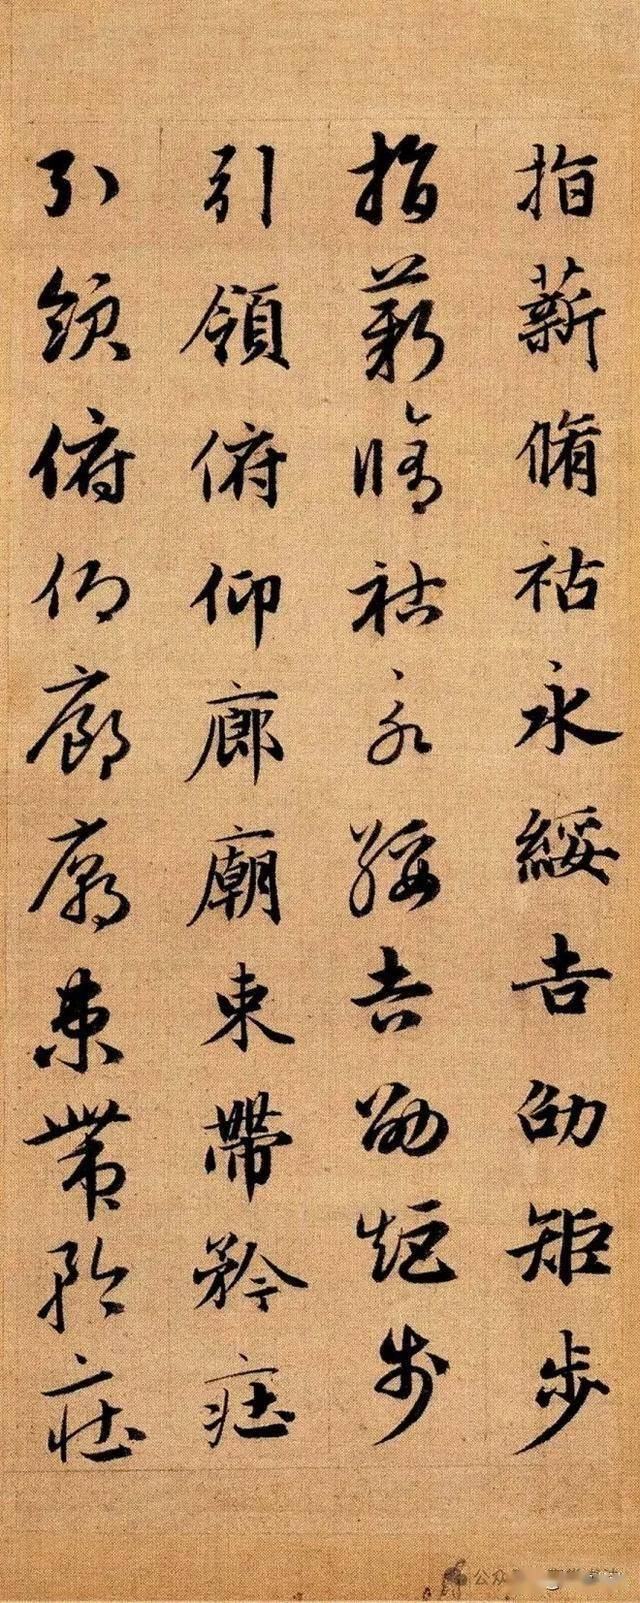 指薪脩祜永綏吉劭矩步
指薪脩祜永綏吉劭矩步
引領俯仰廊廟束帶矜莊
引領俯仰廊廟束帶矜莊
公众号